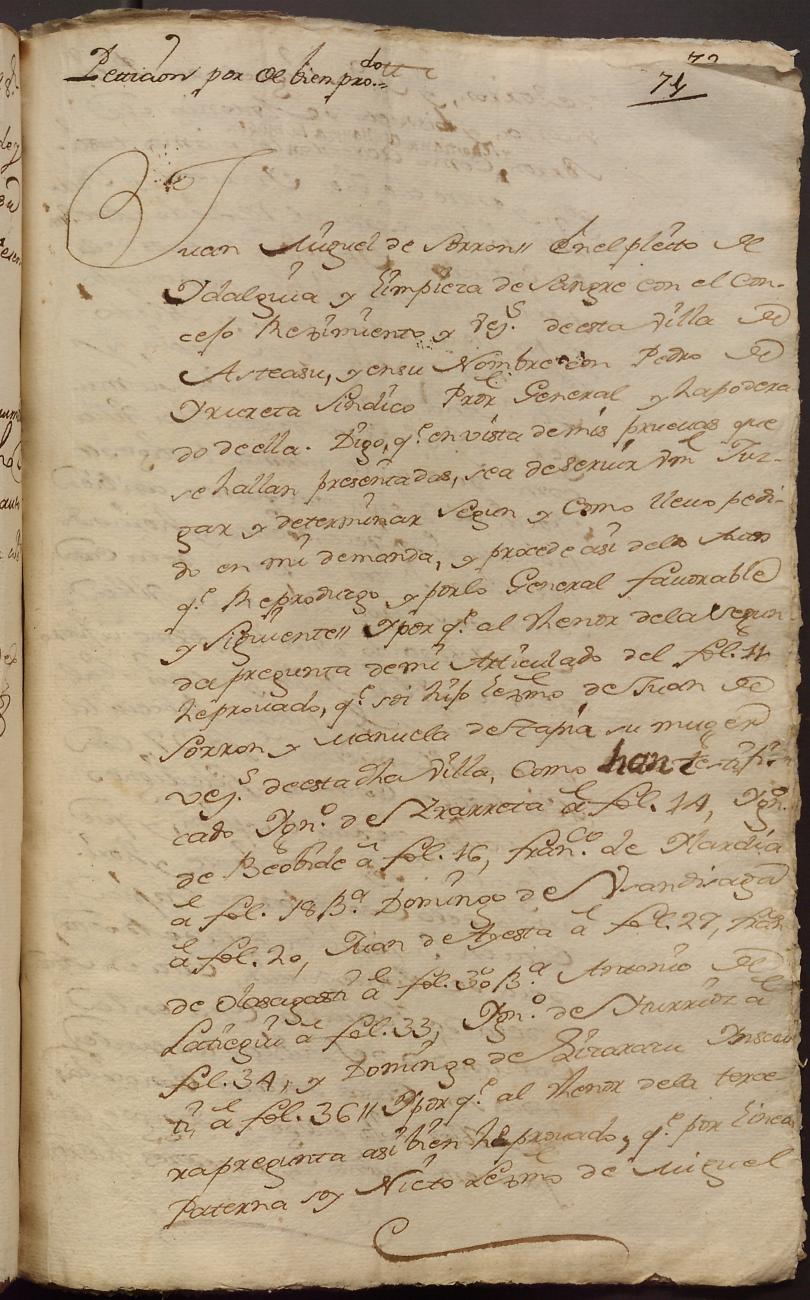 Peticion por de bien pro.do
72
74
Juan Miguel de Sorron // En el pleito de
Ydalguia y limpieza de Sangre con el Con-
cejo Rexímiento y vez.s de esta villa de
Asteasu, y en su Nombre con Pedro de
Yrureta Sindico Pror General y hapodera
do de ella. Digo, q.e en vista de mis pruevas que
se hallan presentadas, sea de servir Vm Juz-
gar y determinar segun y como llevo pedi-
do en mi demanda, y procede asi de lo
q.e Reprodugo y por lo General favorable
y siguiente // Y por q.e al thenor de la segun
da pregunta de mi Articulado del fol. 11
he provado, q.e soi hijo lexmo de Juan de
Sorron y Manuela de Tapia su muger
vez.s de esta dha villa, como han testifi-
cado Ygn.o de Yrarreta al fol. 14, Ygn.o
de Beobide a fol. 16, fran.co de Nardia
a fol. 18 B.ta Domingo de
a fol. 20, Juan de Ayesta al fol. 27, fran
de Olasagasti al fol. 30 B.ta Antonio de
Lategui al fol. 33, Ygn.o de Yturrioz al
fol. 34, y Domingo de Lizararu
al fol. 36 // Y por q.e al thenor de la terce-
ra pregunta asi bien he provado, q.e por linea
Paterna soy Nieto lexmo de Miguel